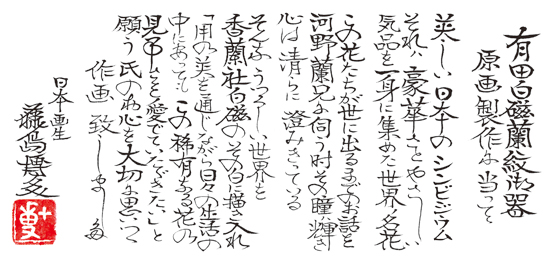 有田白磁蘭紋御器
原画製作に当って
美しい日本のシンビジウム
それは豪華さとやさしい
気品を一身に集めた世界の名花
この花たちが世に出るまでのお話を
河野蘭兄に伺う時その瞳は輝き
心は清らに澄みきっている
そんなうつくしい世界を
香蘭社白磁のその白に描き入れ
「用の美を通じながら日々の生活の
中にあっても この稀有なる花の
見事さを愛でていただきたい」と
願う氏のお心を大切に思いつつ
作画致しました
日本画生